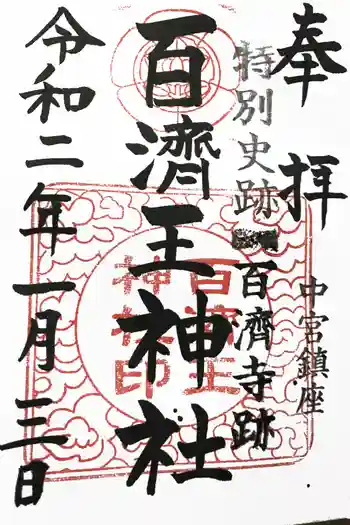 奉拝
中宮鎮座
特別史跡
百濟寺跡
百濟王神社
百濟王
神社印
令和二年一月三日